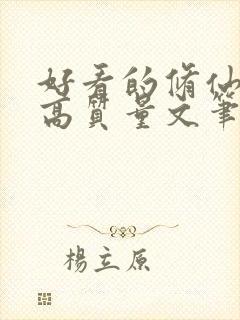 好看的脩仙
高質量文筆
楊立原